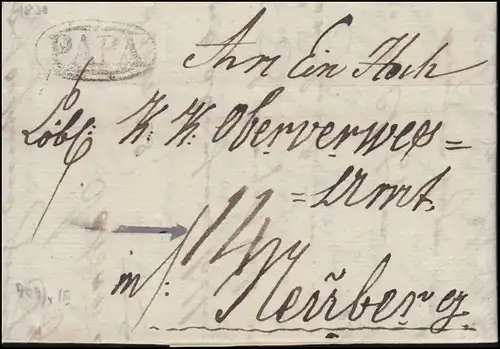 1828
PAPA
An Ein Hoch
Löbl: K: K: Oberverwes=
=Amt.
14
in
Neuberg